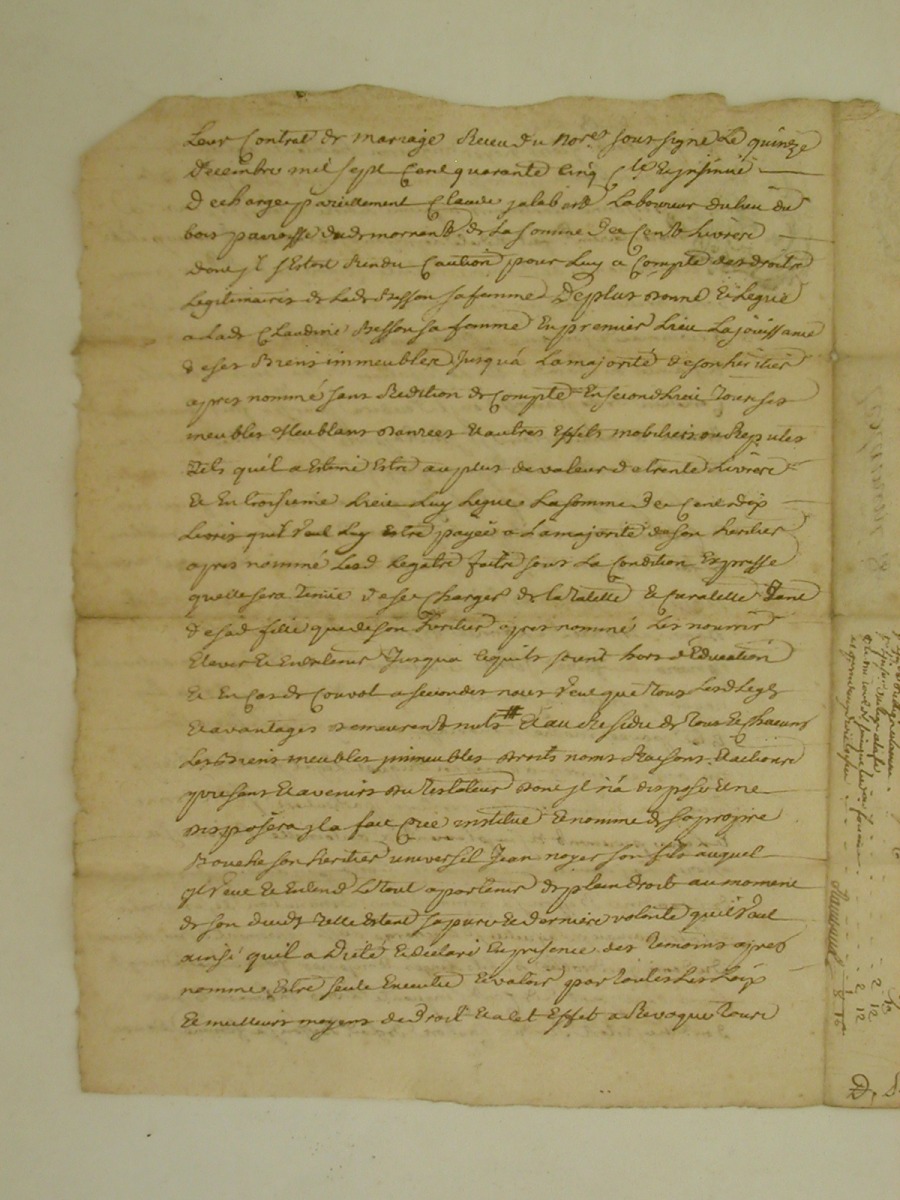 Leur Contrat de mariage Receu du nore soussigné Le quinze
Decembre mil sept Cent quarante Cinq Clé Et jnsinué
Decharge pareillement Claude jalabert Laboureur du lieu du
bois parroisse dud mornant de La somme de Cent Livres
dont jl sEstoit Rendu Caution pour Luy a Compte des droits
Legitimaires de Lad Besson sa femme De plus donne Et Legue
a Lad Claudine Besson sa femme En premier Lieu La jouissance
de ses Biens immeubles Jusqu'a La majorité de son heritier
apres nommé sans Redition de Compte En second Lieu Tous ses
meubles Meublans danrees Et autres Effets mobiliers ou Reputés
Tels quil a Estimé Estre au plus de valeur de trente Livres
Et En troisieme Lieu Luy Legue La somme de Cent dix
Livres quil veut Luy Estre payée a La majorité de son heritier
apres nommé Lesd Legats faits sous La Condition Expresse
quelle sera Tenue de se Charger de la Tutelle Et Curatelle Tant
de sad fille que de son heritier apres nommé Les nourrir
Elever Et Entretenir Jusqua Cequils soient hors d'Education
Et En Cas de Convol a secondes noces veut que Tous Lesd Legs
Et avantages demeurent nuls # Et au Residu de Tous Et Chacuns
Les Biens meubles jmmeubles droits noms Raisons Et actions
presans Et avenirs du Testateur dont jl n'a disposé Et ne
disposera jl a fait Créé institué Et nommé de sa propre
Bouche son heritier universel Jean noyer son fils auquel
jl veut Et Entend Le tout apartenir de plein droit au moment
de son deceds Telle Estant sa pure Et derniere volonté quil veut
ainsi quil a Dicté Et Declaré En presence des Temoins apres
nommés Estre seule Executée Et valoir par Toutes Les Loix
Et meilleurs moyens de Droit Et a Cet Effet a Revoqué Tous
2 12
2 12